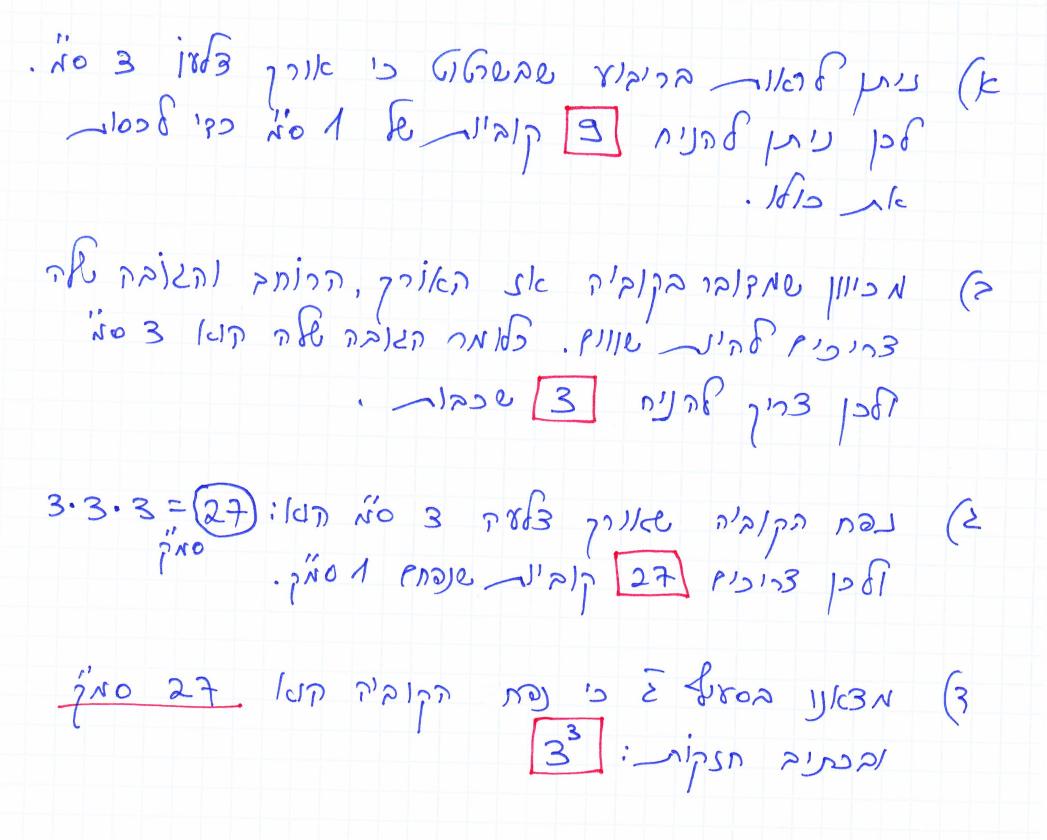 א) ניתן לראות בריבוע שבשרטוט כי אורך צלעו 3 ס"מ.
לכן ניתן להניח 9 קוביות של 1 ס"מ כדי לכסות
את כולו.
ב) מכיוון שמדובר בקוביה אז האורך, הרוחב והגובה שלה
צריכים להיות שווים. כלומר הגובה שלה הוא 3 ס"מ
ולכן צריך להניח 3 שכבות.
ג) נפח הקוביה שאורך צלעה 3 ס"מ הוא: 3·3·3 = 27
סמ"ק
ולכן צריכים 27 קוביות שנפחם 1 סמ"ק.
ד) מצאנו בסעיף ג' כי נפח הקוביה הוא 27 סמ"ק
ובכתיב חזקות: 3³